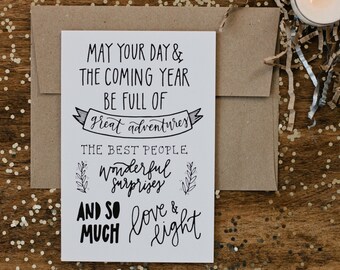 MAY YOUR DAY &
THE COMING YEAR
BE FULL OF
great adventures
THE BEST PEOPLE
wonderful
surprises
AND SO
MUCH
love &
light